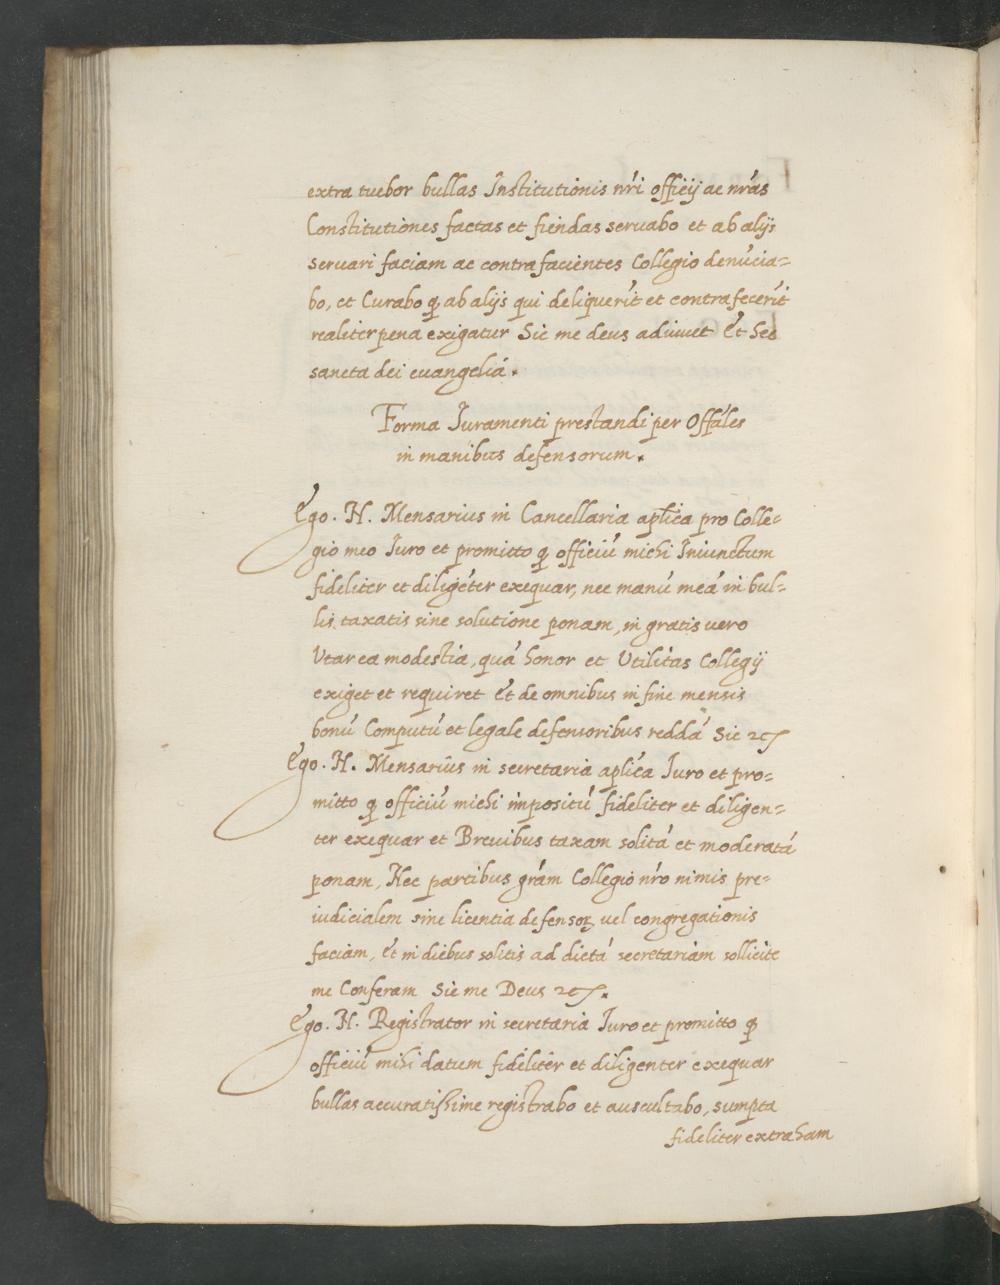 extra tuebor bullas Institutionis nr̃i officij ac nr̃as
Constitutiones factas et fiendas seruabo et ab alijs
seruari faciam ac contrafacientes Collegio denũcia=
bo, et Curabo ꝙ ab alijs qui deliquerĩt et contrafecerĩt
realiter pena exigatur Sic me deus adiuuet Et hec
sancta dei euangelia.
Forma Iuramenti prestandi per Offãles
in manibus defensorum.
Ego. N. Mensarius in Cancellaria aplĩca pro Colle=
gio meo Iuro et promitto ꝙ officiũ michi Iniunctum
fideliter et diligẽter exequar, nec manũ meã in bul=
lis taxatis sine solutione ponam, in gratis uero
Utar ea modestia, quã honor et Utilitas Collegij
exiget et requiret Et de omnibus in fine mensis
bonũ Computũ et legale defensoribus reddã Sic ⁊c̃
Ego. N. Mensarius in secretaria aplĩca Iuro et pro=
mitto ꝙ officiũ michi impositũ fideliter et diligen=
ter exequar et Breuibus taxam solitã et moderatã
ponam, Nec partibus grãm Collegio nr̃o nimis pre=
iudicialem sine licentia defensoꝝ uel congregationis
faciam, Et in diebus solitis ad dictã secretariam sollicite
me Conferam Sic me Deus ⁊c̃.
Ego. N. Registrator in secretaria Iuro et promitto ꝙ
officiũ mihi datum fideliter et diligenter exequar
bullas accuratissime registrabo et auscultabo, sumpta
fideliter extraham